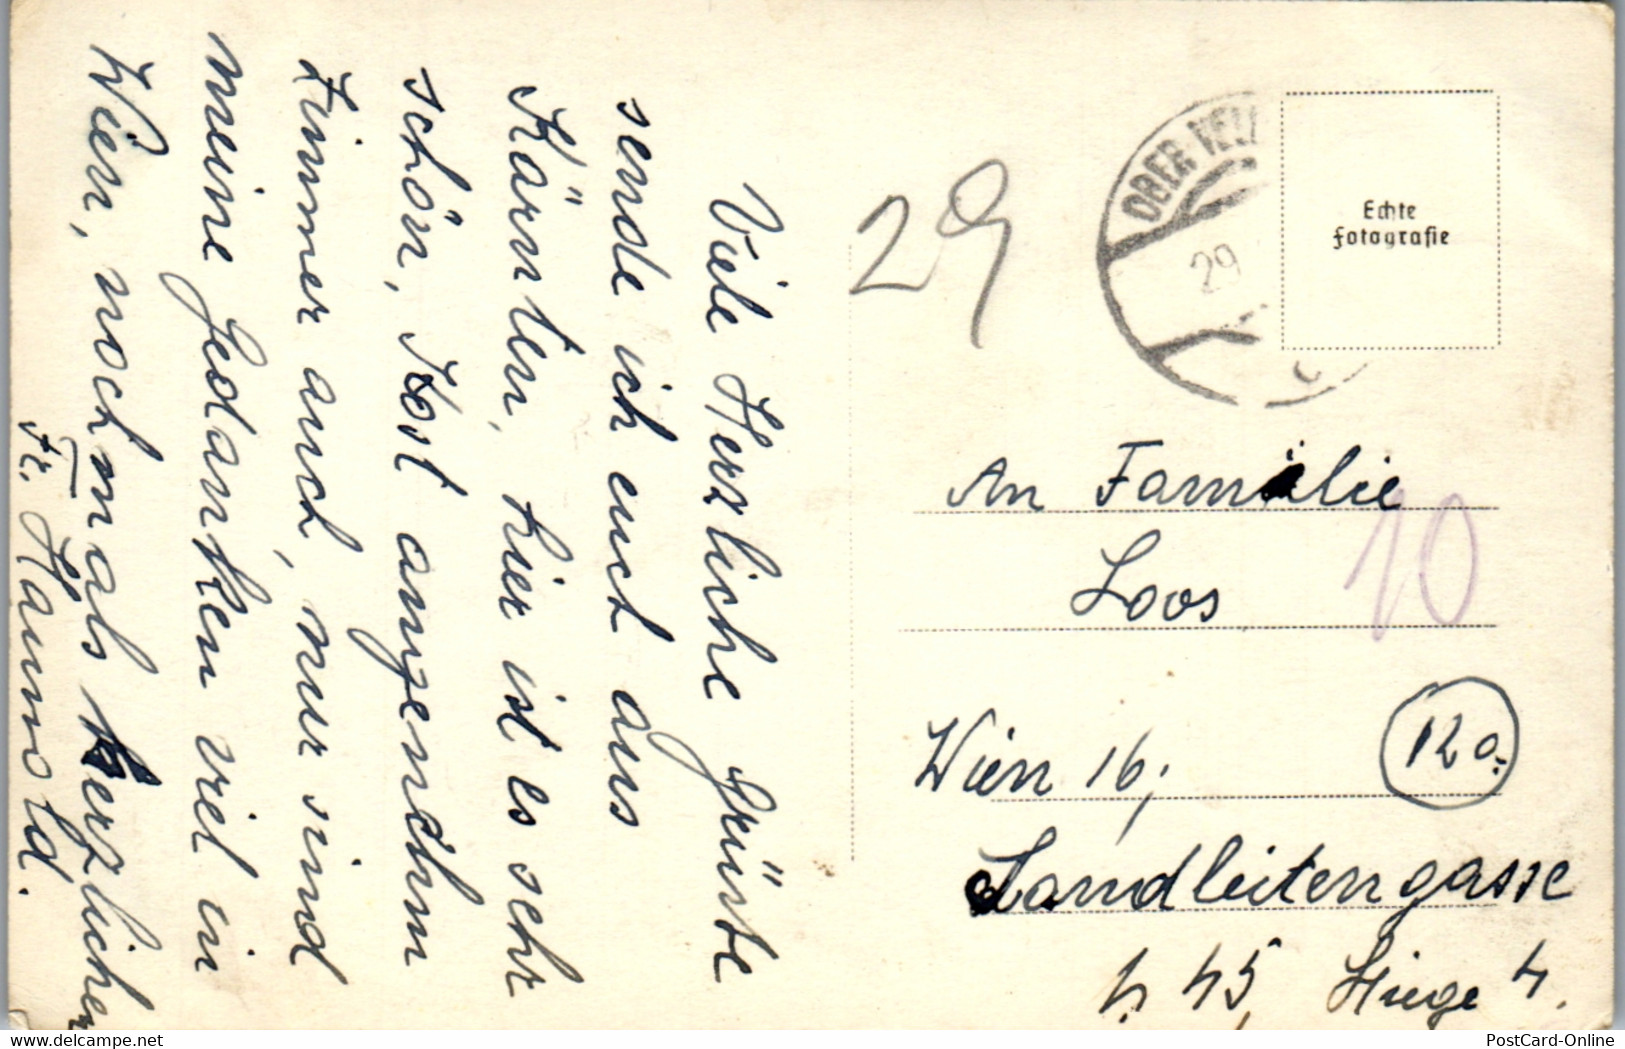 Viele Herzliche Grüsse
sende ich euch aus
Kärnten, hier ist es sehr
schön, Kost angenehm
Zimmer auch, nur sind
meine Gedanken viel in
Wien, nochmals herzlichen
Fr. Haunold.
29
OBER VELL
29
Echte
Fotografie
An Familie
Loos
10
Wien 16,
12a
Landleitengasse
45, Stiege 4.
www.delcampe.net
PostCard-Online